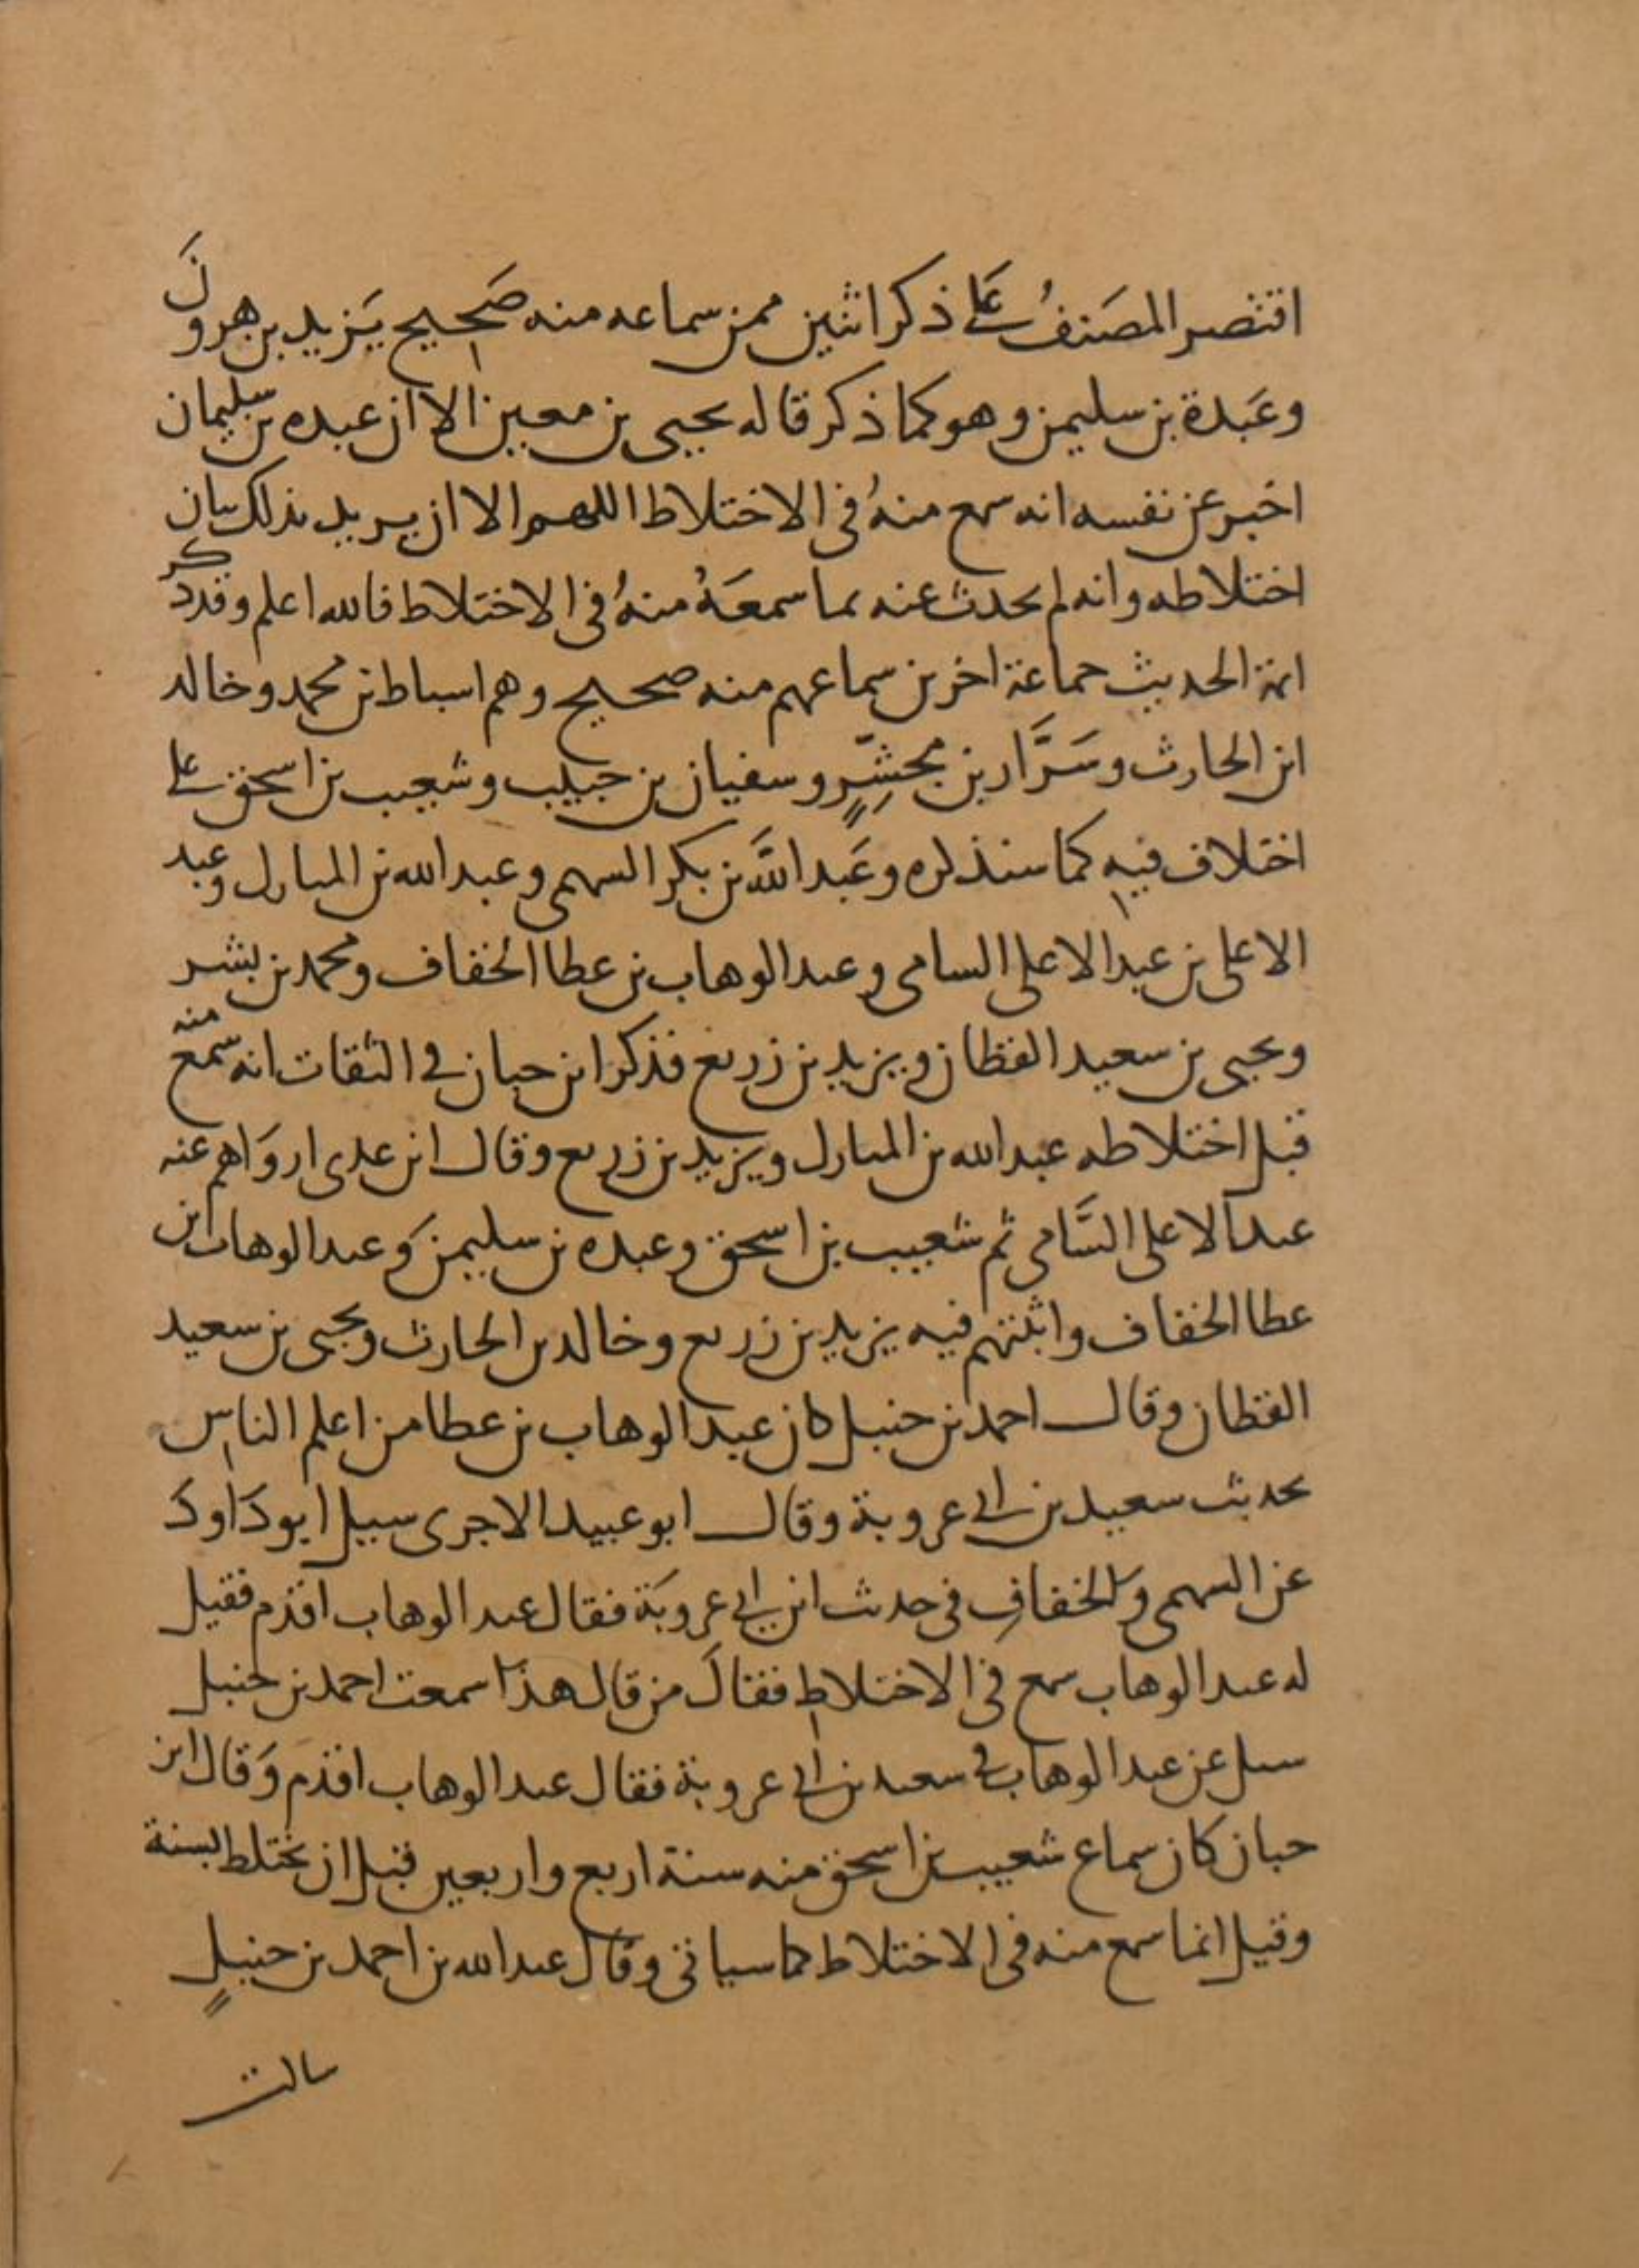 اقتصر المصَنفُ عَلى ذكر اثنين ممن سماعه منه صَحيح يَزيد بن هرونَ
وعَبدة بن سليمن وهو كما ذكر قاله يحيى بن معين الا ان عبده بن سليمان
اخبر عن نفسه انه سمع منهُ فى الاختلاط اللهم الا ان يريد بذلك بيان
اختلاطه وانه لم يحدث عنه بما سمعَهُ منهُ فى الاختلاط فالله اعلم وقد ذكر
ائمة الحديث جماعة اخرين سماعهم منه صحيح وهم اسباط بن محمد وخالد
ابن الحارث وسَرَّار بن مجشِّرٍ وسفيان بن حبيب وشعيب بن اسحق على
اختلاف فيه كما سنذكره وعَبد اللَّه بن بكر السهمى وعبد الله بن المبارك وعبد
الاعلى بن عبد الاعلى السامى وعبد الوهاب بن عطا الخفاف ومحمد بن بشر
ويحيى بن سعيد القطان ويزيد بن زريع فذكر ابن حبان فى الثقات انه سمع منه
قبل اختلاطه عبد الله بن المبارك ويزيد بن زريع وقال ابن عدى اروَاهم عنه
عبد الاعلى السَّامى ثم شعيب بن اسحق وعبده بن سليمن وَعبد الوهاب ابن
عطا الخفاف واثبتهم فيه يزيد بن زريع وخالد بن الحارث ويحيى بن سعيد
القطان وقال احمد بن حنبل كان عبد الوهاب بن عطا من اعلم الناس
بحديث سعيد بن ابى عروبة وقال ابو عبيد الاجرى سيل ابو دَاودَ
عن السهمى والخفافِ فى حديث ابن ابى عروبَة فقال عبد الوهاب اقدم فقيل
له عبد الوهاب سمع فى الاختلاط فقالَ من قال هذا سمعت احمد بن حنبل
سيل عن عبد الوهاب فى سعيد بن ابى عروبة فقال عبد الوهاب اقدم وَقال ابن
حبان كان سماع شعيب بن اسحق منه سنة اربع واربعين قبل ان يختلط بسنة
وقيل انما سمع منه فى الاختلاط كما سياتى وقال عبد الله بن احمد بن حنبلٍ
سالت